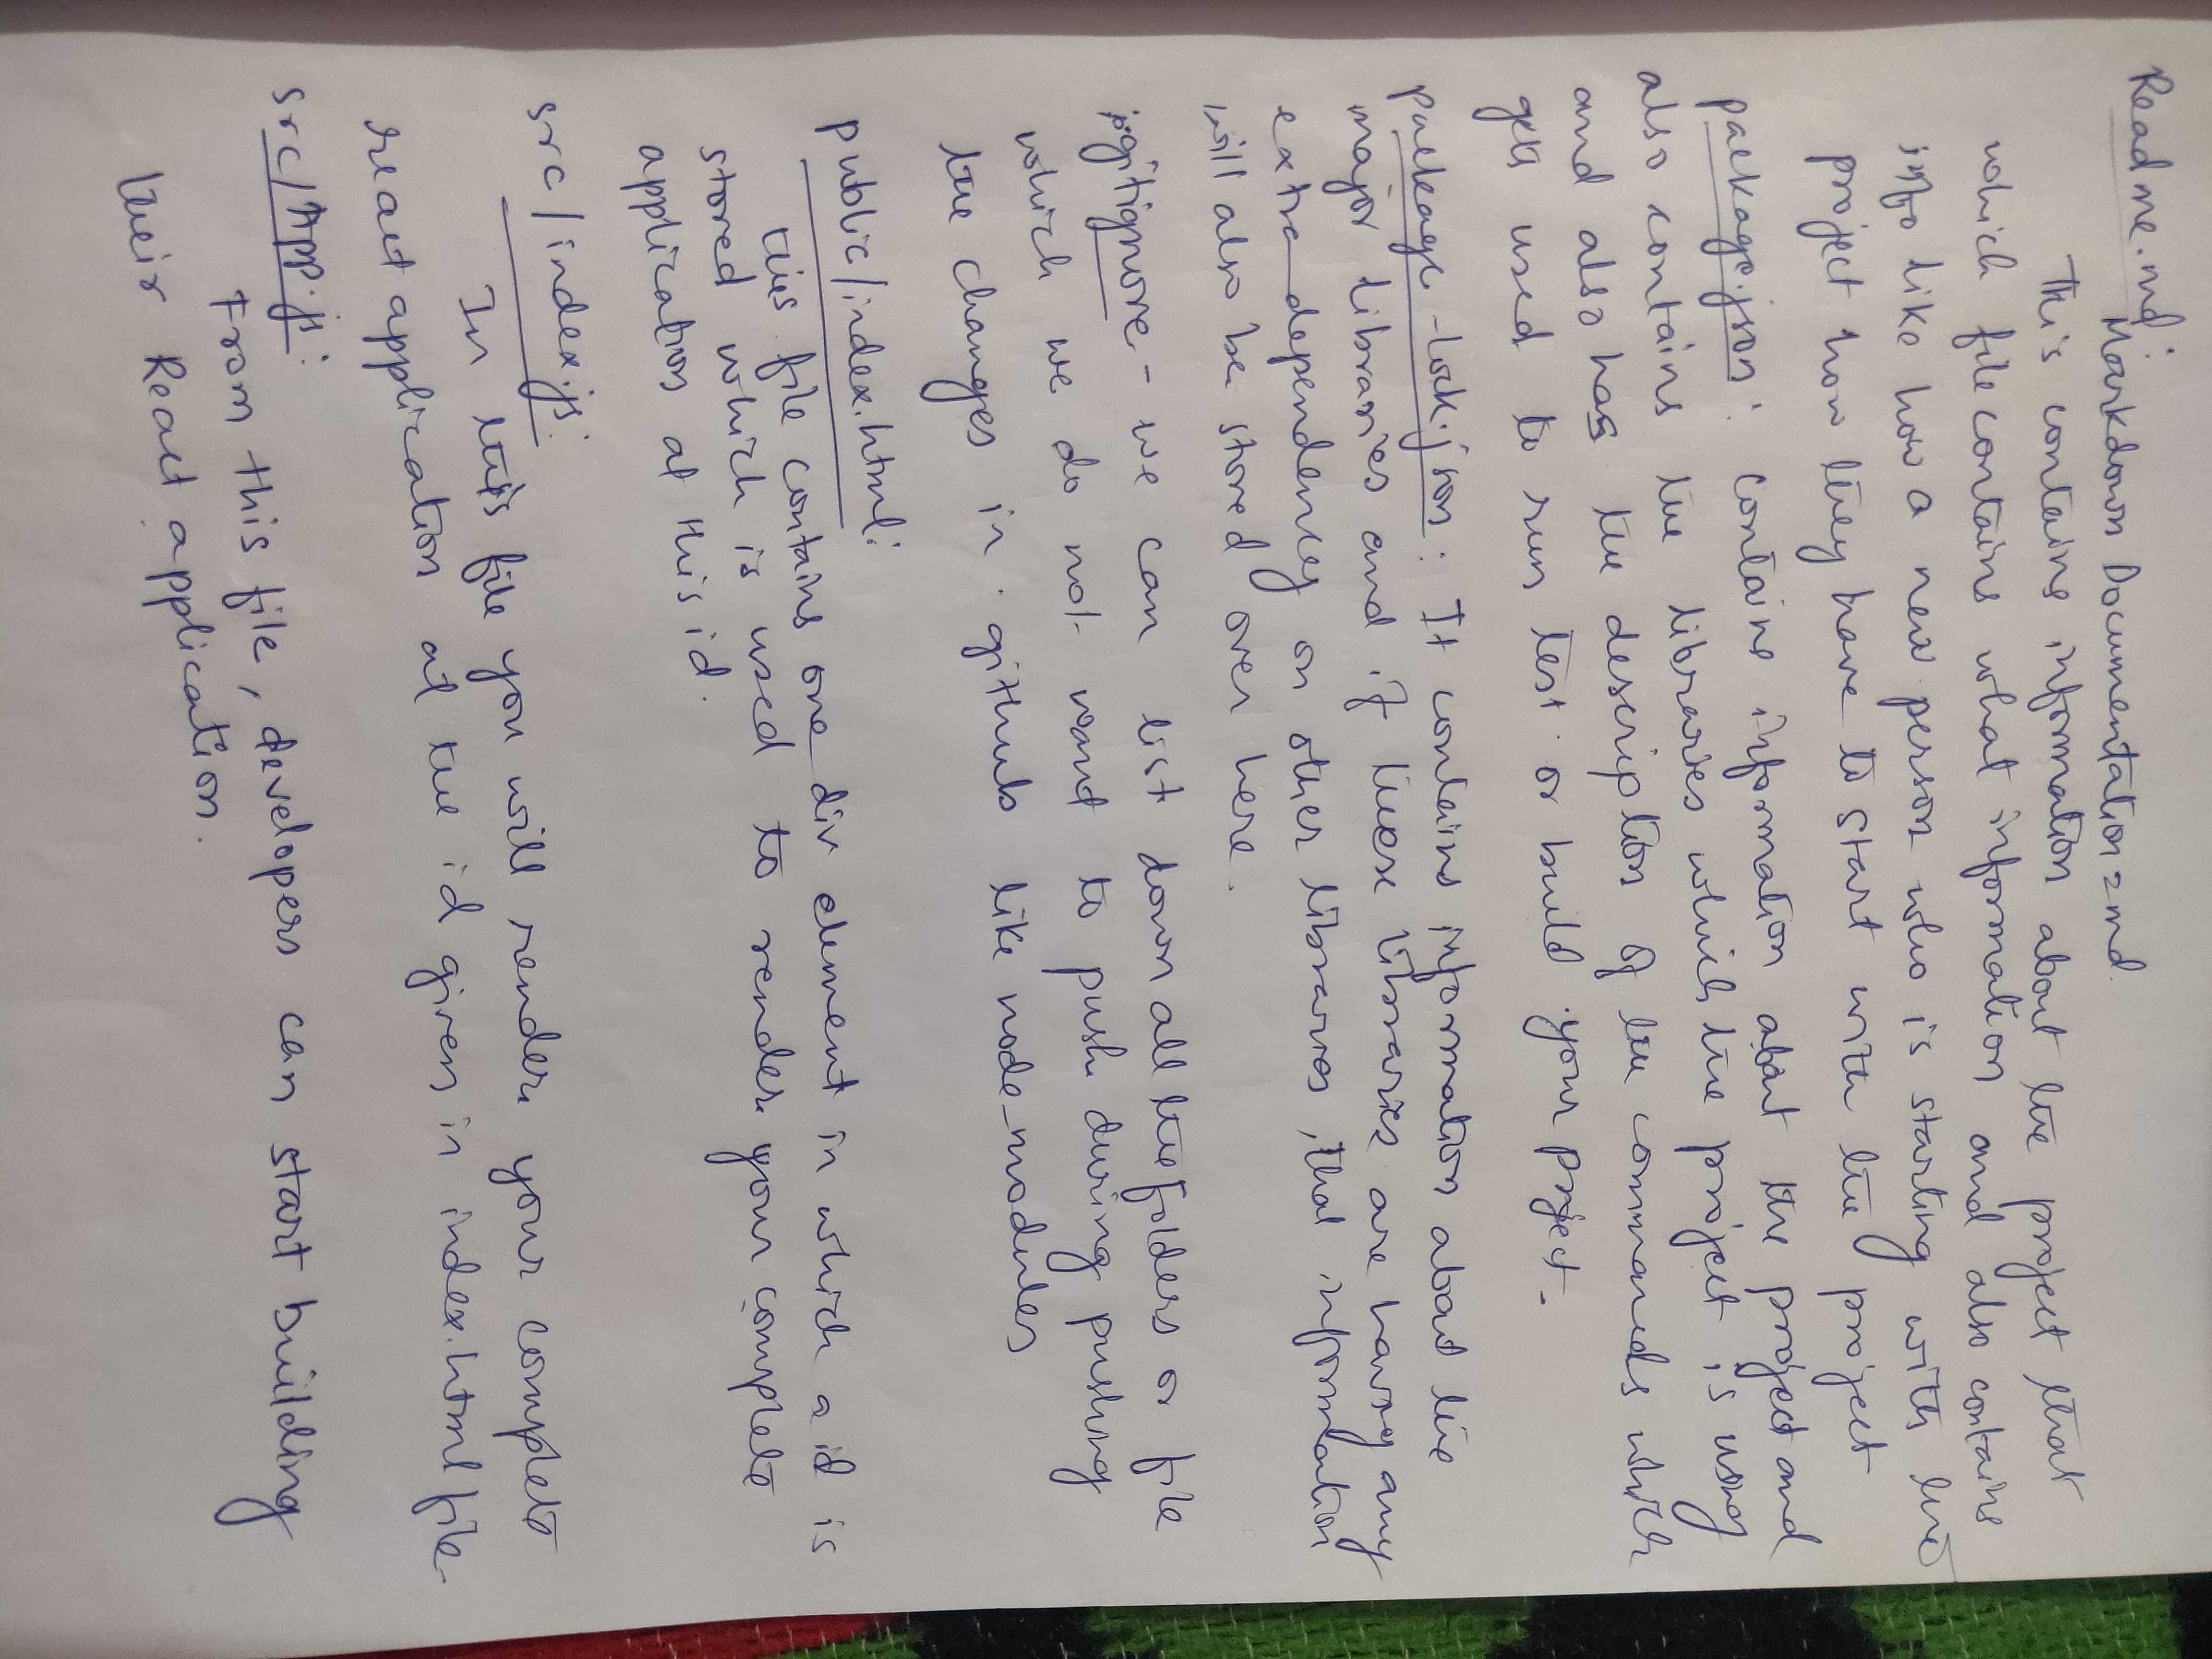 Readme.md:
Markdown Documentation = md.
This contains information about the project that
which file contains what information and also contains
info like how a new person who is starting with the
project how they have to start with the project
package.json: contains information about the project and
also contains the libraries which the project is using
and also has the description of the commands which
gets used to run test or build your project.
package-lock.json: It contains information about the
major libraries and if these libraries are having any
extra dependency on other libraries, that information
will also be stored over here.
.gitignore - we can list down all the folders or file
which we do not want to push during pushing
the changes in github like node-modules
public/index.html:
this file contains one div element in which a id is
stored which is used to render your complete
application at this id.
src/index.js:
In this file you will render your complete
react application at the id given in index.html file
src/App.js:
From this file, developers can start building
their React application.